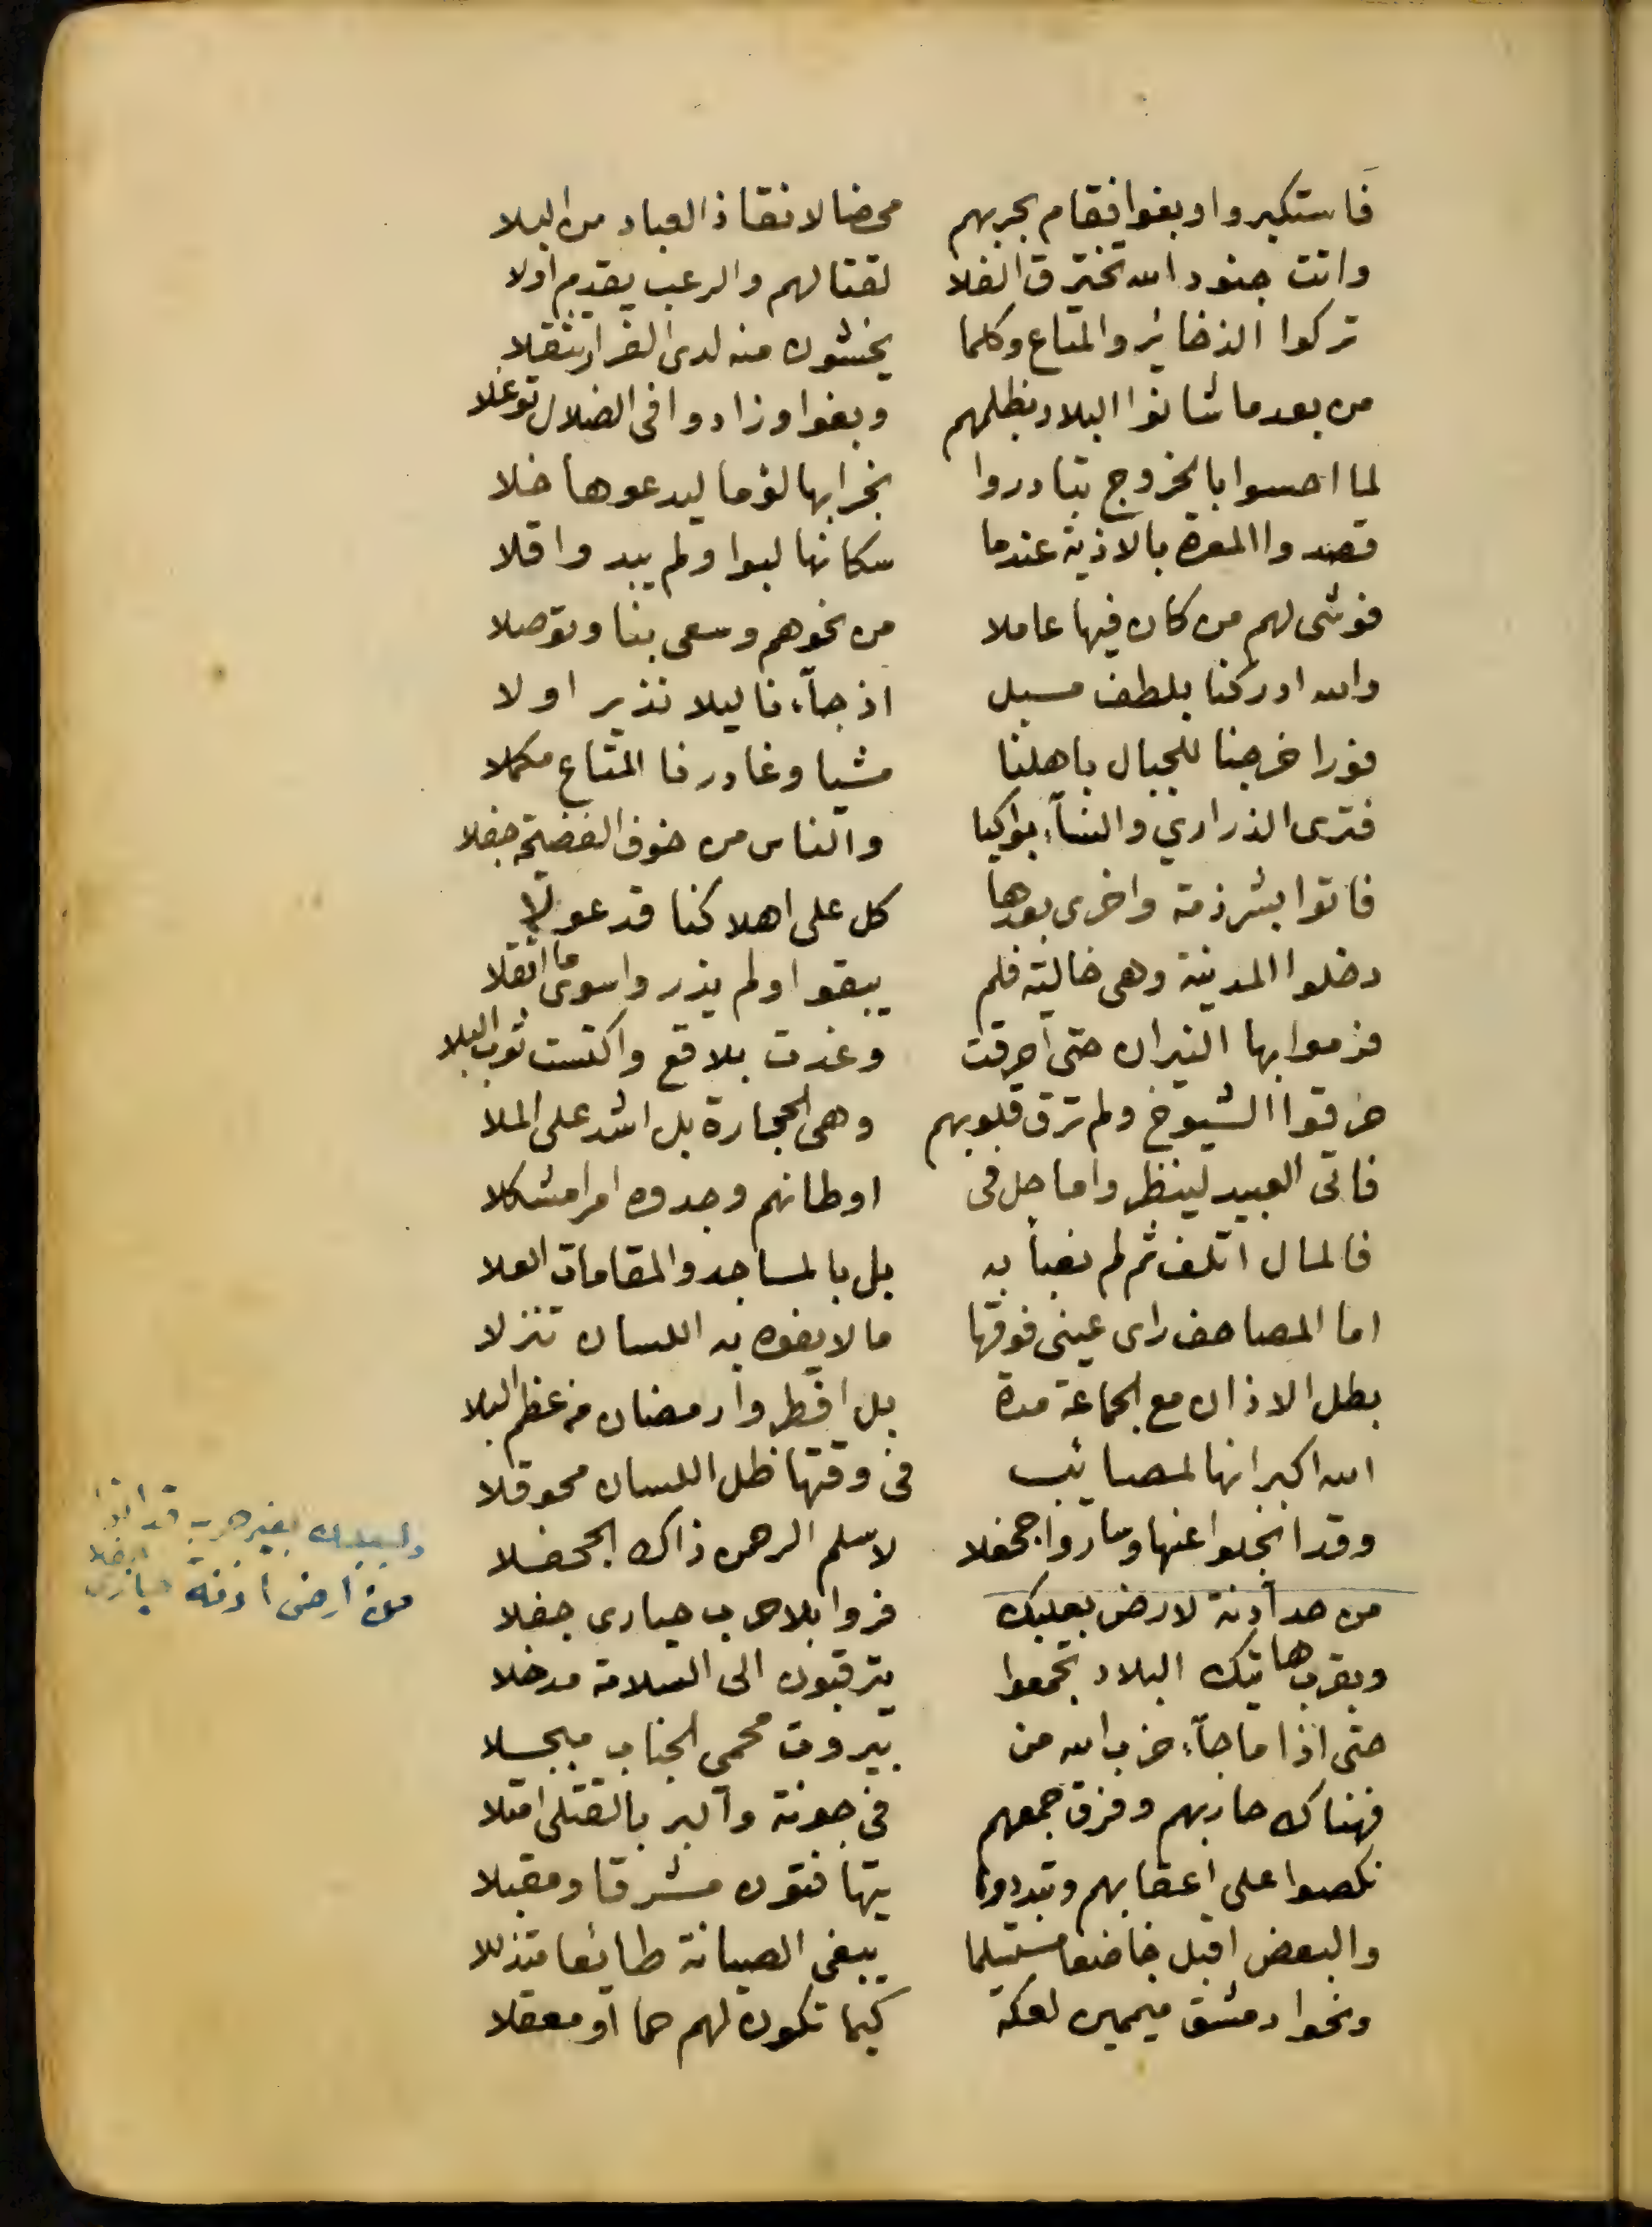 فاستكبروا وبغوا فقام بحربهم محضا لانقاذ العباد من البلا
واتت جنود الله تخترق الفلا لقتالهم والرعب يقدم اولا
تركوا الذخائر والمتاع وكلما يخشون منه لدى الفرار تثقلا
من بعد ما شانوا البلاد بظلمهم وبغوا وزادوا فى الضلال توغلا
لما احسوا بالخروج تبادروا بخرابها لؤما ليدعوها خلا
قصدوا المعرة بالاذية عندما سكانها لبوا ولم يبدوا قلا
فوشى لهم من كان فيها عاملا من نحوهم وسعى بنا وتوصلا
والله ادركنا بلطف مسبل اذ جآءنا ليلا نذير اولا
فورا خرجنا للجبال باهلنا مشيا وغادرنا المتاع مكملا
فترى الذراري والنسآء بواكيا والناس من خوف الفضيحة جفلا
فاتوا بشرذمة واخرى بعدها كل على اهلاكنا قد عولا
دخلوا المدينة وهى خالية فلم يبقوا ولم يذروا سوى ما اثقلا
فرموا بها النيران حتى احرقت وغدت بلاقع واكتست ثوب البلا
حرقوا الشيوخ ولم ترق قلوبهم وهى الحجارة بل اشد على الملا
فاتى العبيد لينظروا ما حل فى اوطانهم وجدوه امرا مشكلا
فالمال اتلف ثم لم نعبأ به بل بالمساجد والمقامات العلا
اما المصاحف راى عينى فوقها ما لا يفوه به اللسان تنزلا
بطل الاذان مع الجماعة مدة بل افطروا رمضان من عظم البلا
الله اكبر انها لمصائب فى وقتها ظل اللسان محوقلا
وقد انجلوا عنها وساروا جحفلا لا سلم الرحمن ذاك الجحفلا
من حد آدنة لارض بعلبك فروا بلا حرب حيارى جفلا
وبقرب هاتيك البلاد تجمعوا يترقبون الى السلامة مدخلا
حتى اذا ما جآء حزب الله من بيروت محمى الجناب مبجلا
فهناك حاربهم وفرق جمعهم فى جونة والبر بالقتلى امتلا
نكصوا على اعقابهم وتبددوا يتهافتون مشرقا ومقبلا
والبعض اقبل خاضعا مستسلما يبغى الصيانة طائعا متذللا
ونحوا دمشق ميممين لعكة كيما تكون لهم حما او معقلا
ولبعلبك بغير حرب قد اتوا
من ارض ادنة حيارى جفلا